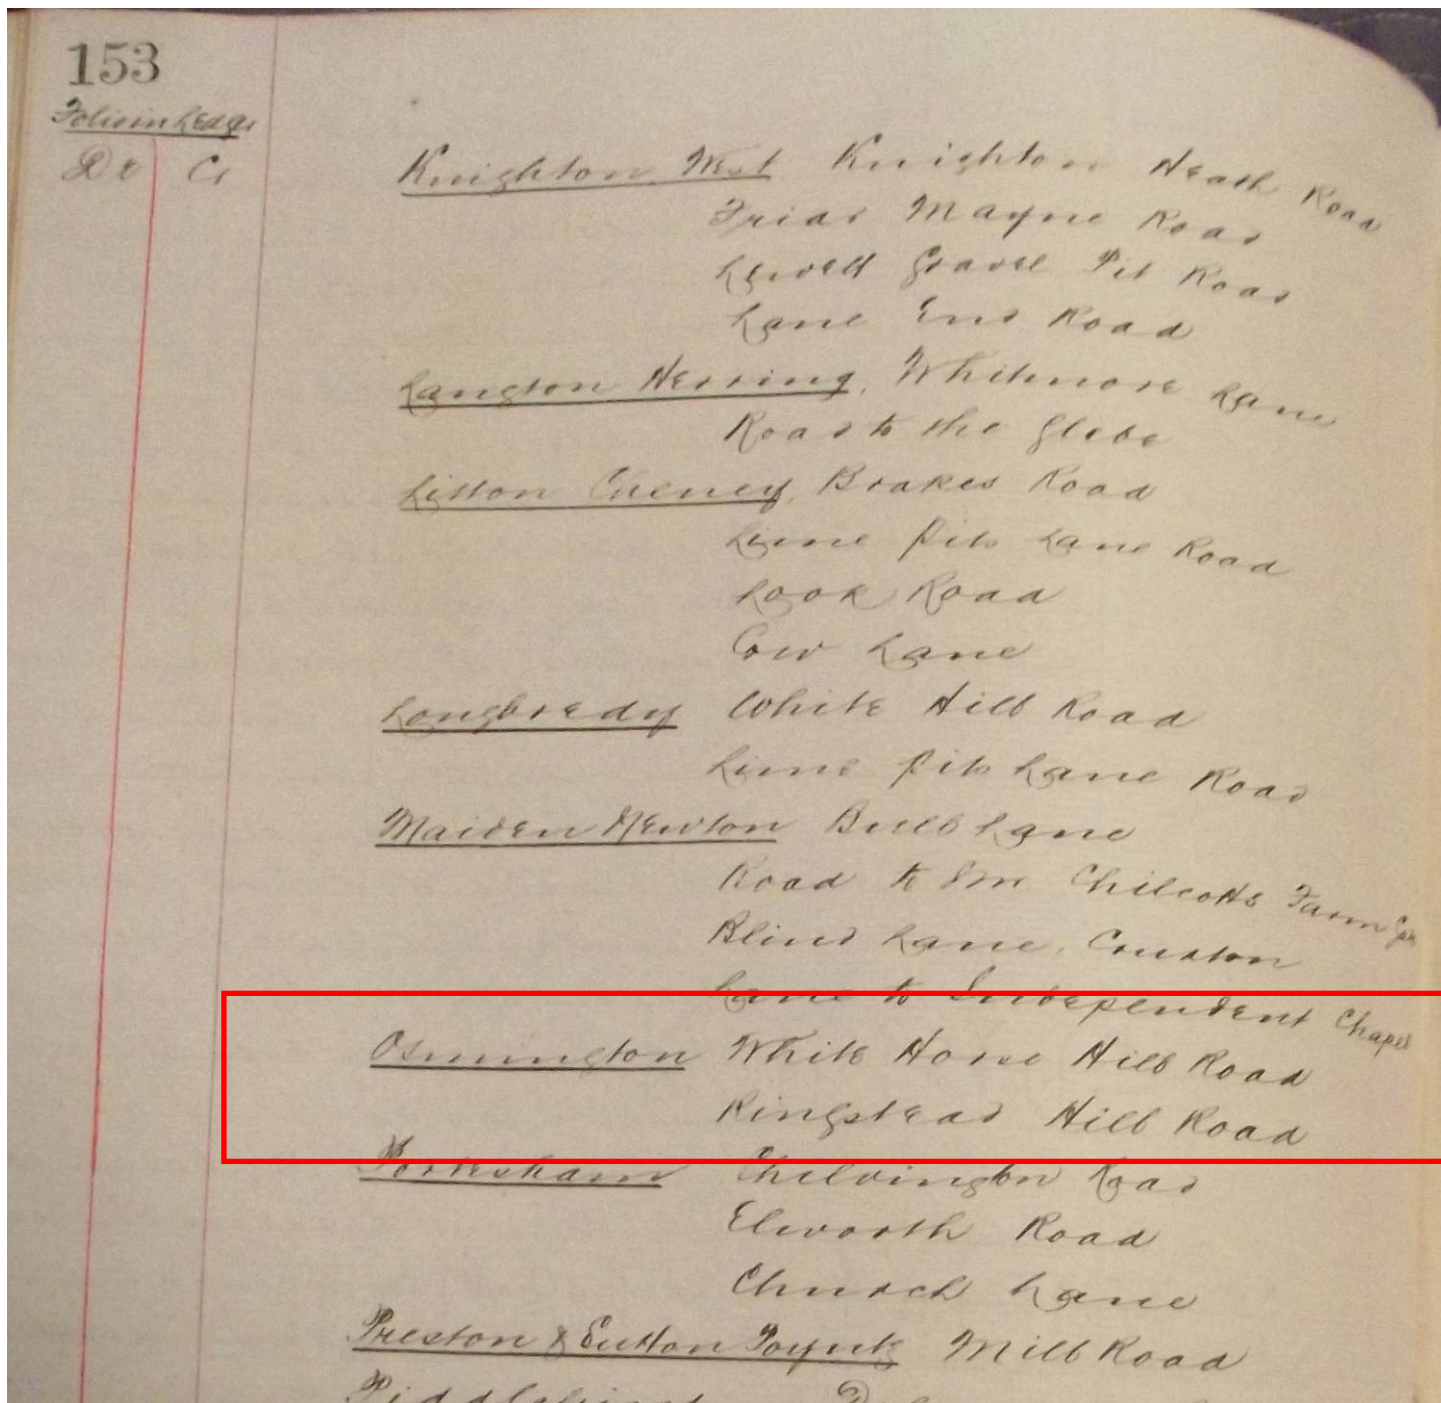 153
Folio in Ledger
Dr Cr
Knighton West Knighton Heath Road
Friar Mayne Road
Lewell Gravel Pit Road
Lane End Road
Langton Herring, Whitmore Lane
Road to the Glebe
Litton Cheney, Brakes Road
Lime Pits Lane Road
Look Road
Cow Lane
Longbredy White Hill Road
Lime Pits Lane Road
Maiden Newton Bull Lane
Road to Mr Chilcotts Farm
Blind Lane, Cruxton
Lane to Independent Chapel
Osmington White Horse Hill Road
Ringstead Hill Road
Portesham Chilvington Road
Elworth Road
Church Lane
Preston & Sutton Poyntz Mill Road